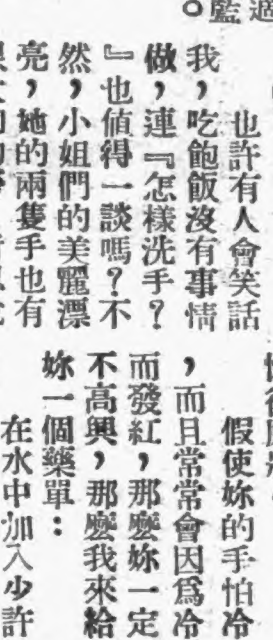 適監。
也許有人會笑話
我，吃飽飯沒有事情
做，連『怎樣洗手？
』也値得一談嗎？不
然，小姐們的美麗漂
亮，她的兩隻手也有
假使妳的手怕冷
，而且常常會因爲冷
而發紅，那麼妳一定
不高興，那麼我來給
妳一個藥單：
在水中加入少許